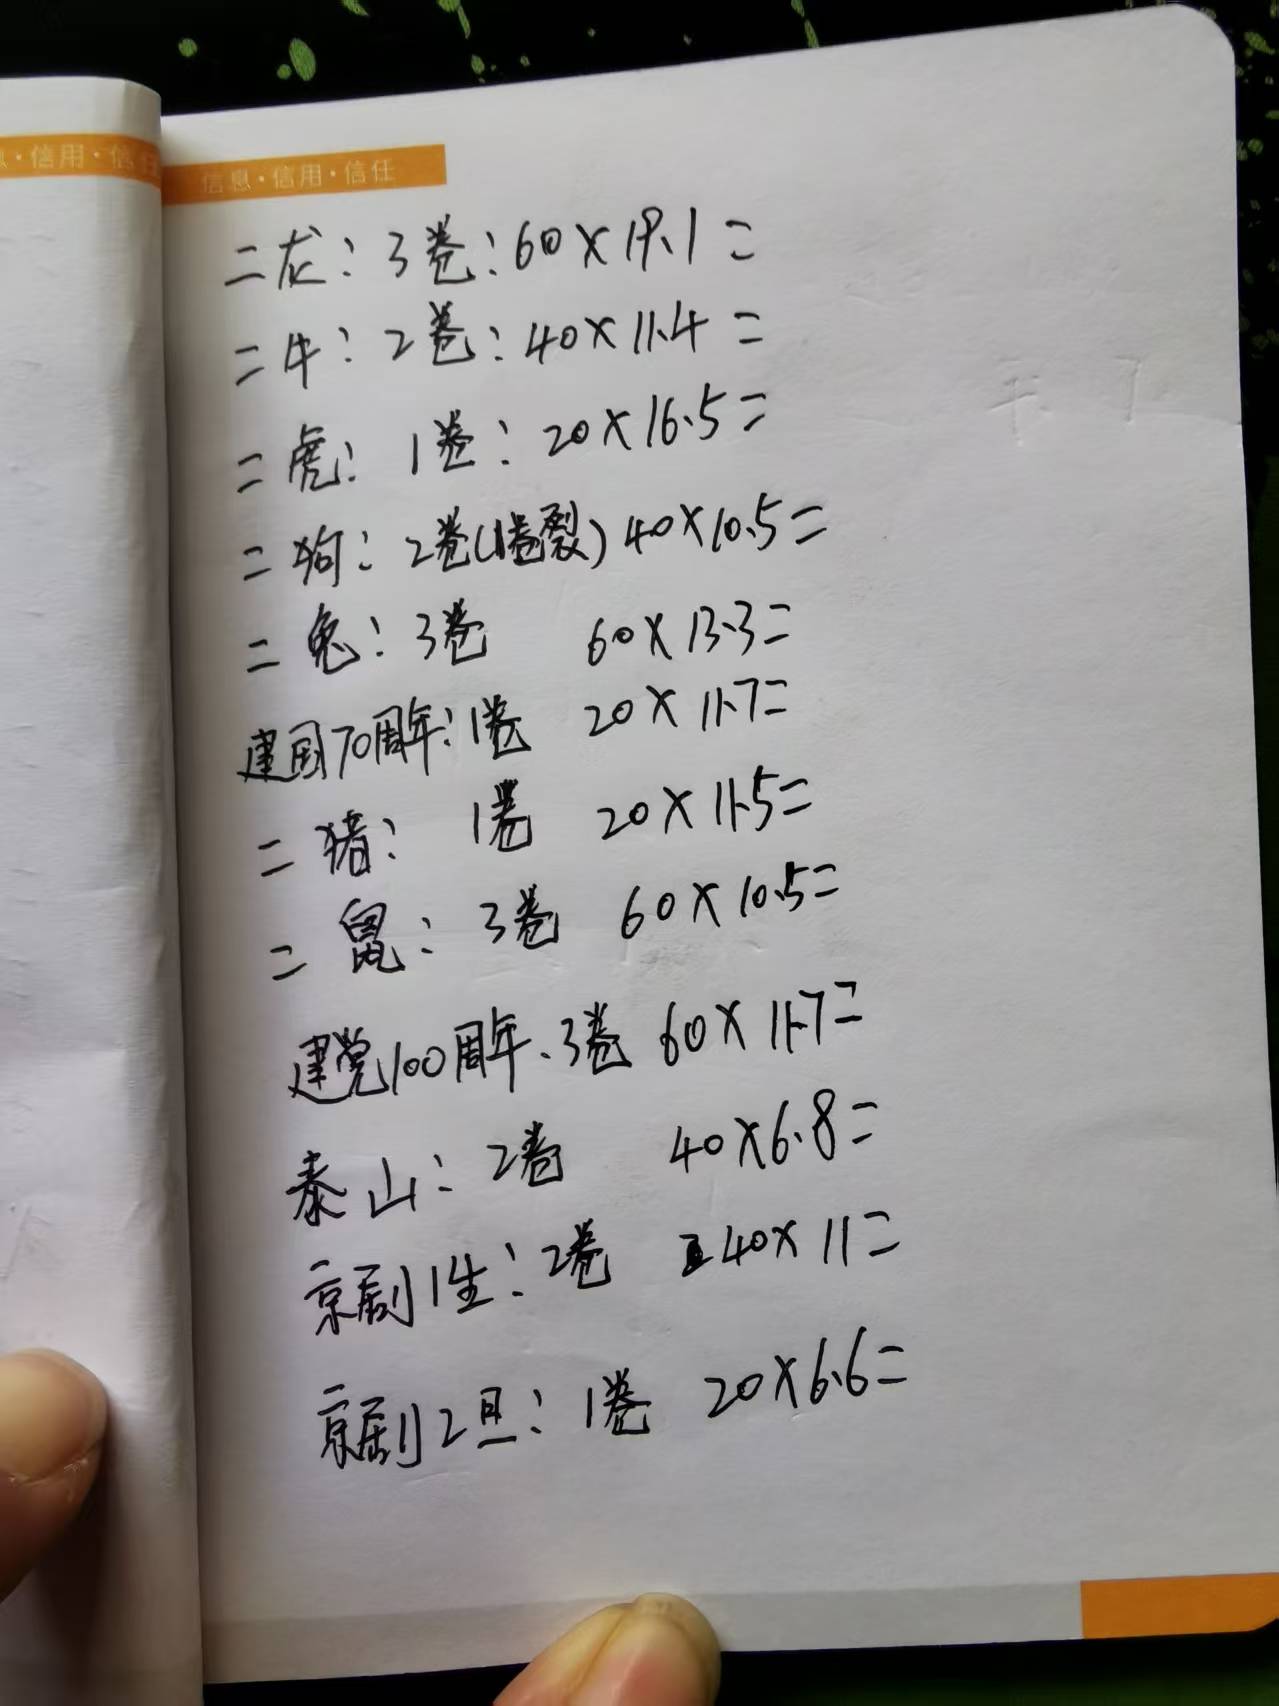 息·信用·信任
信息·信用·信任
二龙：3卷：60×19.1=
二牛：2卷：40×11.4=
二虎：1卷：20×16.5=
二狗：2卷(1卷裂)40×10.5=
二兔：3卷 60×13.3=
建国70周年：1卷 20×11.7=
二猪：1卷 20×11.5=
二鼠：3卷 60×10.5=
建党100周年、3卷 60×11.7=
泰山：2卷 40×6.8=
京剧1生：2卷 40×11=
京剧2旦：1卷 20×6.6=